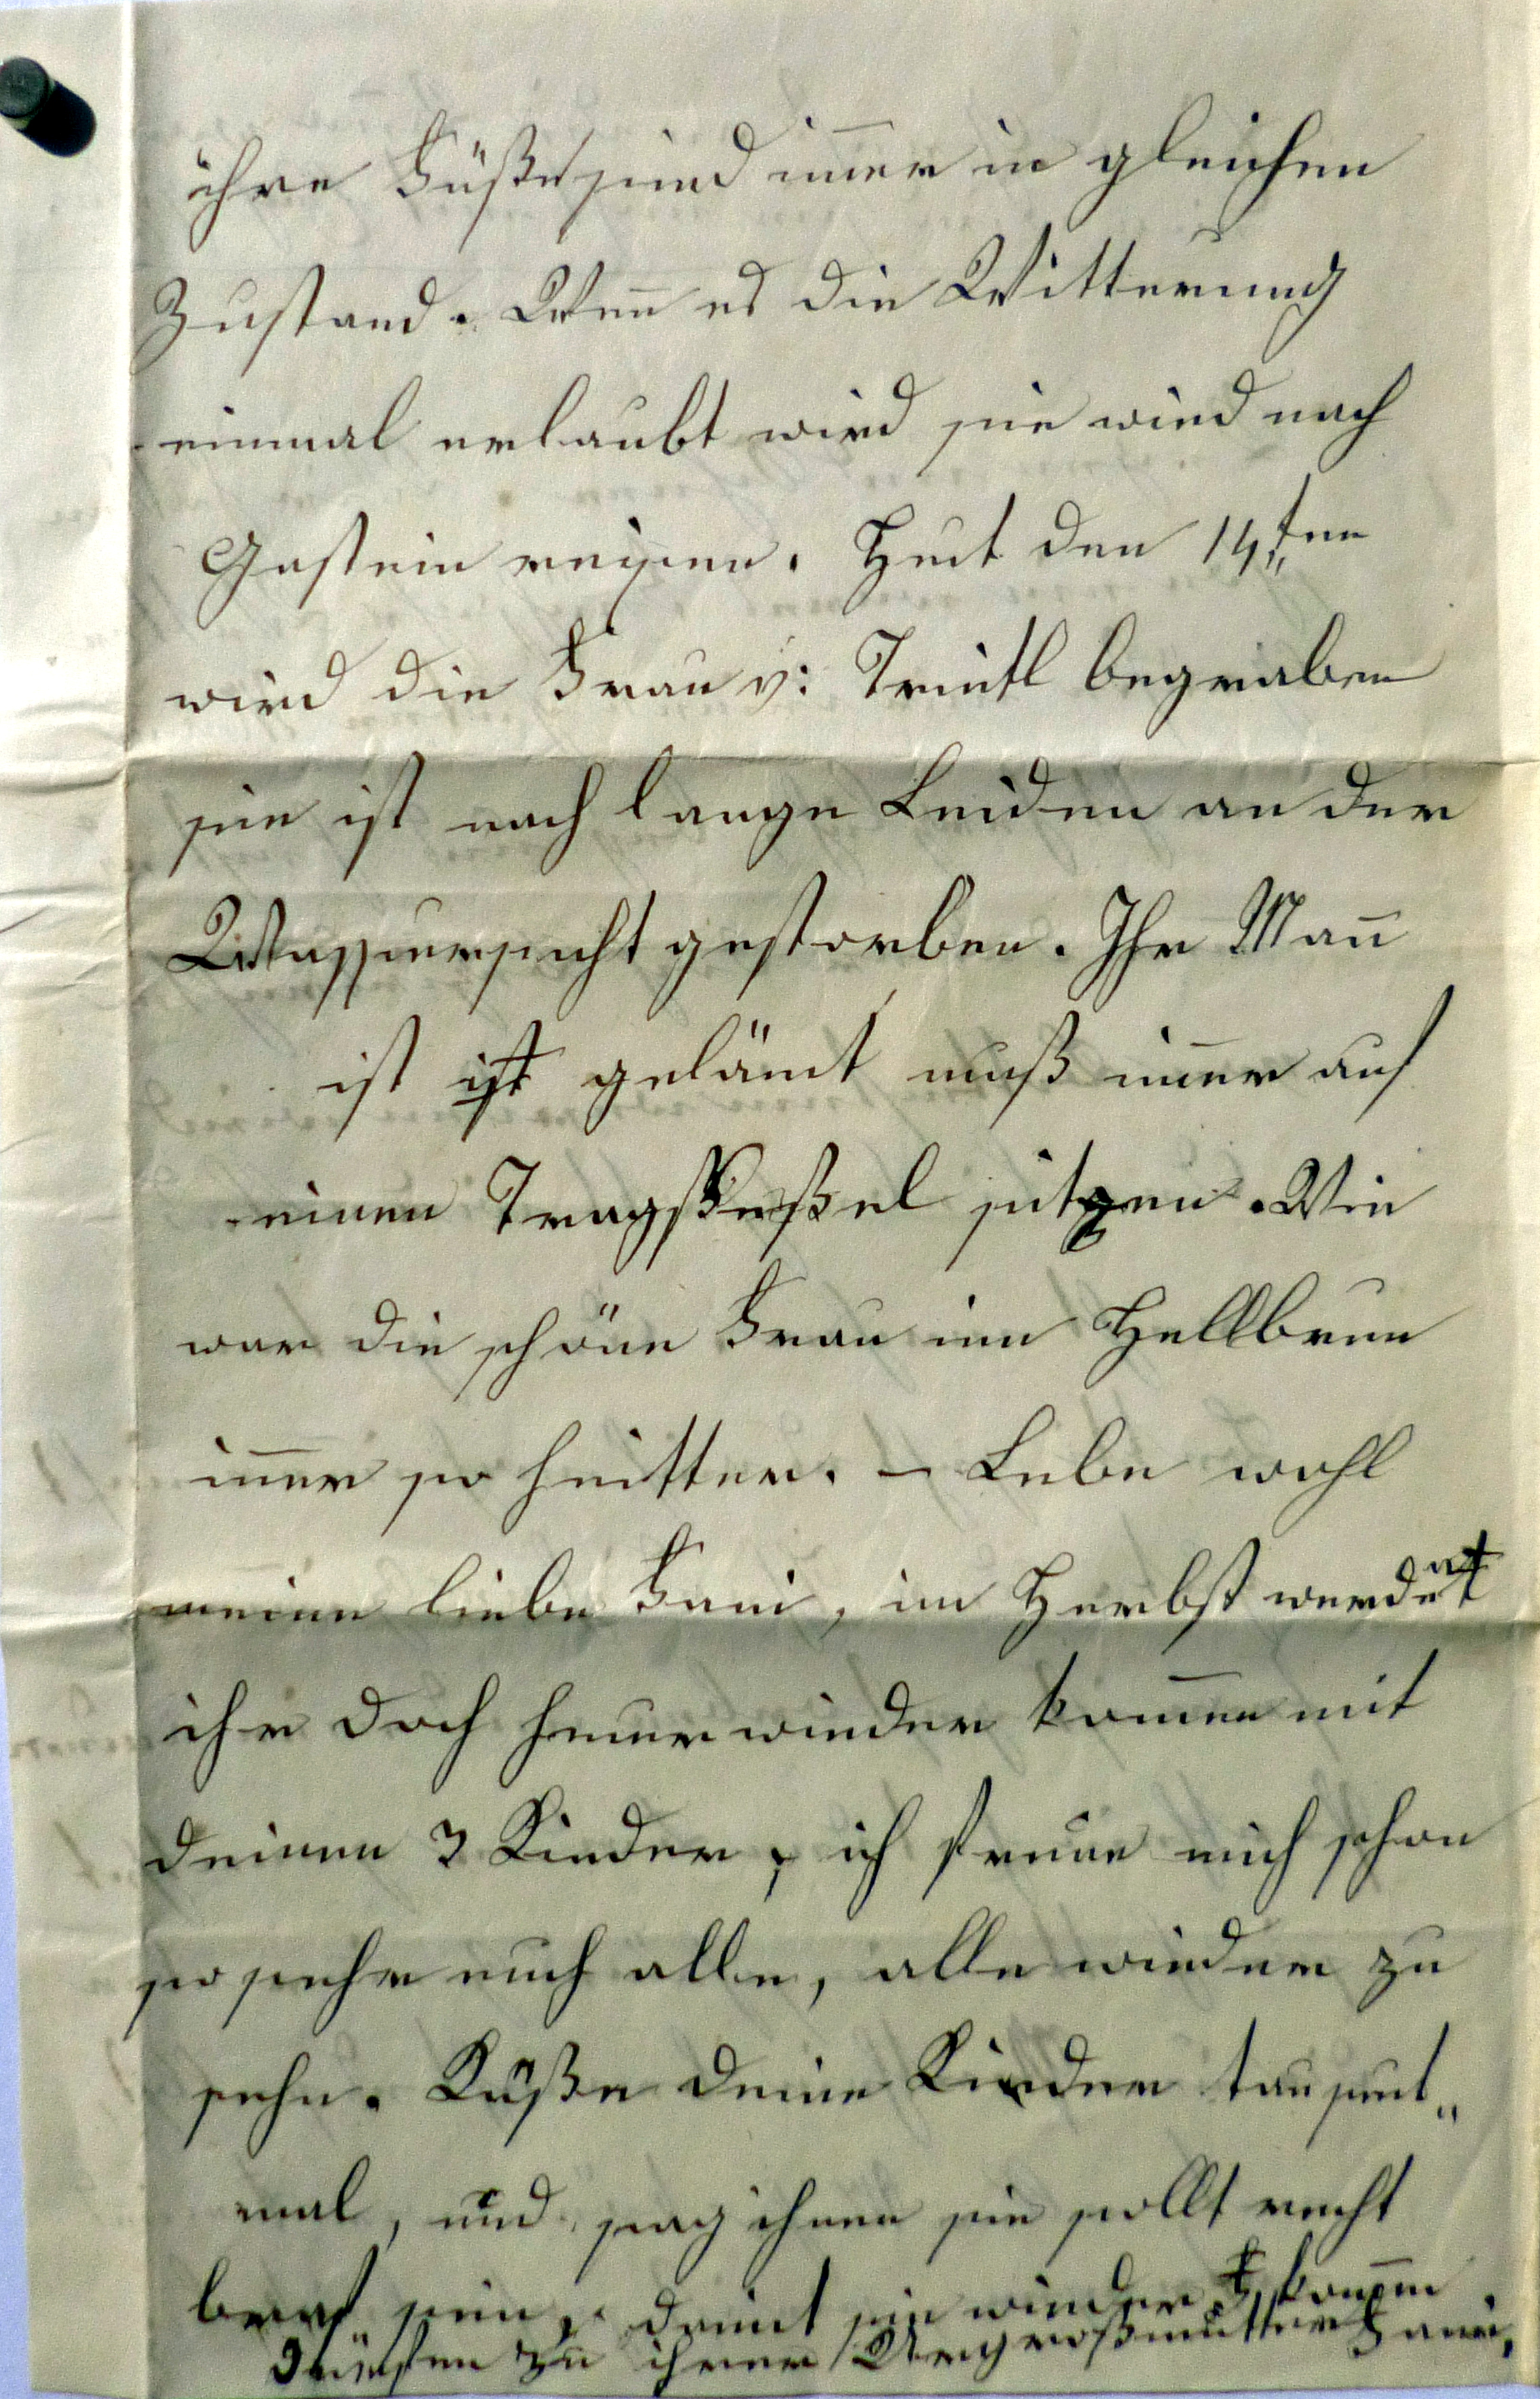 ihre Füße sind im̄er in gleichen
Zustand. Wen̄ es die Witterung
einmal erlaubt wird sie wird nach
Gastein reisen. Heut den 14ten
wird die Frau v: Treitl begraben
sie ist nach lange Leiden an der
Wassersucht gestorben. Ihr Man̄
ist ist gelämt muß im̄er auf
einen Tragseßel sitzen. Wie
war die schöne Frau im Hellbrun
im̄er so heitter. – Lebe wohl
meine liebe Fani, im Herbst werdet
ihr doch heuer wieder kom̄en mit
deinen 3 Kinder, ich freue mich schon
so sehr euch alle, alle wieder zu
sehn. Küße deine Kinder tausent„
mal, und sag ihnen sie sollt recht
braf sein, damit sie wieder kom̄en
dürfen zu ihrer Urgroßmutter